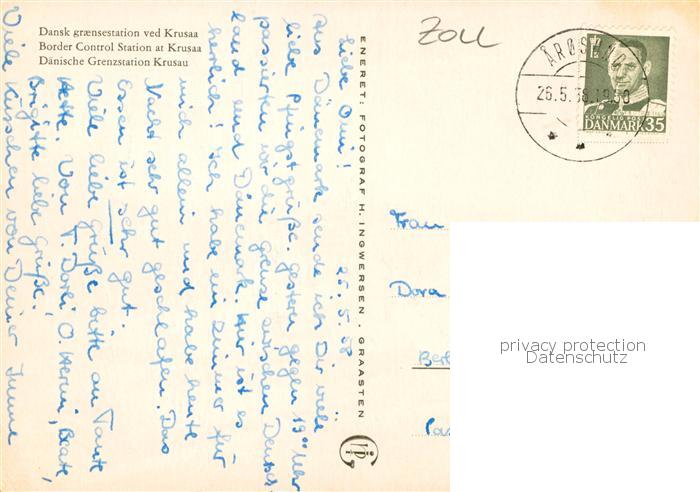 Dansk grænsestation ved Krusaa
Border Control Station at Krusaa
Dänische Grenzstation Krusau
ZOLL
ÅRØSUND
26.5.58.19
KONGELIG POST
DANMARK 35
ENERET: FOTOGRAF H. INGWERSEN . GRAASTEN
25.5.58
Liebe Omi!
Aus Dänemark sende ich Dir viele
liebe Pfingstgrüße. Gestern gegen 19 00 Uhr
passierten wir die Grenze zwischen Deutsch-
land und Dänemark. Hier ist es
herrlich! Ich habe ein Zimmer für
mich allein und habe heute
Nacht sehr gut geschlafen. Das
Essen ist sehr gut.
Viele liebe Grüße bitte an Tante
Von T. Dorli, O. Beate,
Brigitte liebe Grüße!
Viele Küsschen von Deiner
Frau
Dora
Berl
privacy protection
Datenschutz